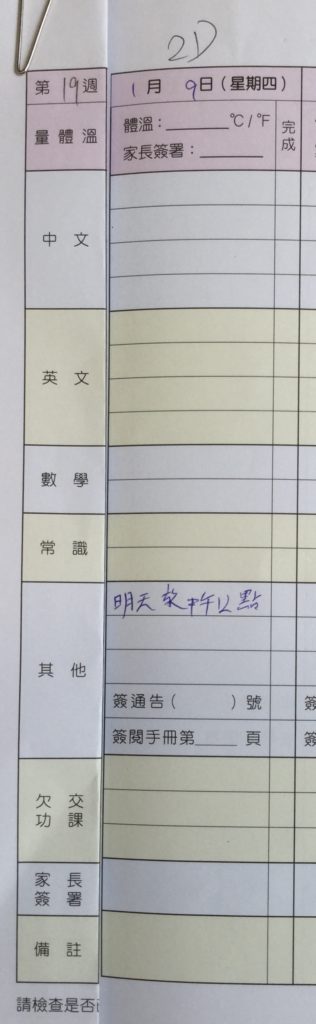 2D
第19週
1月9日(星期四)
量體溫
體溫:______℃/℉
家長簽署:______
完成
中文
英文
數學
常識
其他
明天 中午12點
簽通告( )號
簽閱手冊第____頁
欠交功課
家長簽署
備註
請檢查是否